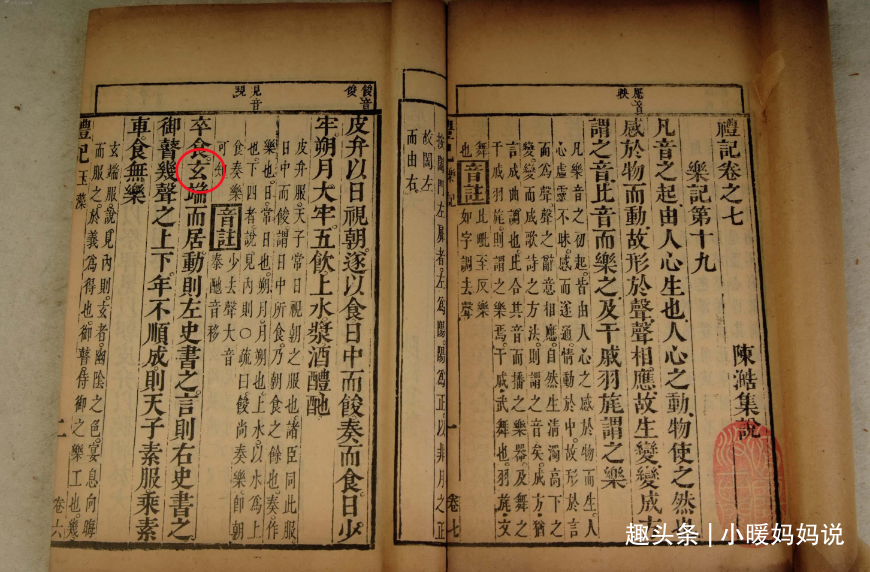 禮記卷之七
陳澔集說
樂記第十九
凡音之起由人心生也人心之動物使之然也
感於物而動故形於聲聲相應故生變變成方
謂之音比音而樂之及干戚羽旄謂之樂
凡樂音之初起皆由人心之感於物而生人
心虛靈不昧感而遂通情動於中故形於言
而為聲聲之辭意相應自然生清濁高下之
變變而成歌詩之方法則謂之音矣成方猶
言成曲調也比合其音而播之樂器及舞之
干戚羽旄則謂之樂焉干戚武舞也羽旄文
舞也。音註 比毗至反樂
如字調去聲
禮記 樂記 一 卷七
故闔左
而由右。
餕音
俊
見音
現
皮弁以日視朝。遂以食。日中而餕。奏而食。日少
牢。朔月大牢。五飲上水。漿酒醴酏
皮弁服。天子常日視朝之服也。諸臣同此服
日中而餕。謂日中所食。乃朝食之餘也。奏作
樂也。日。常日也。朔月。月朔也。上水。以水為上
也。下四者說見內則。○疏曰餕尚奏樂。即朝
食奏樂
可知 音註 少去聲大音
泰酏音移
卒食玄端而居。動則左史書之。言則右史書之
御瞽幾聲之上下。年不順成。則天子素服。乘素
車。食無樂
玄端服。說見內則。玄者。幽陰之色。宴息向晦
而服之。於義為得也。御瞽。侍御之樂工也。幾
禮記 玉藻 二 卷六
趣头条 | 小暖妈妈说